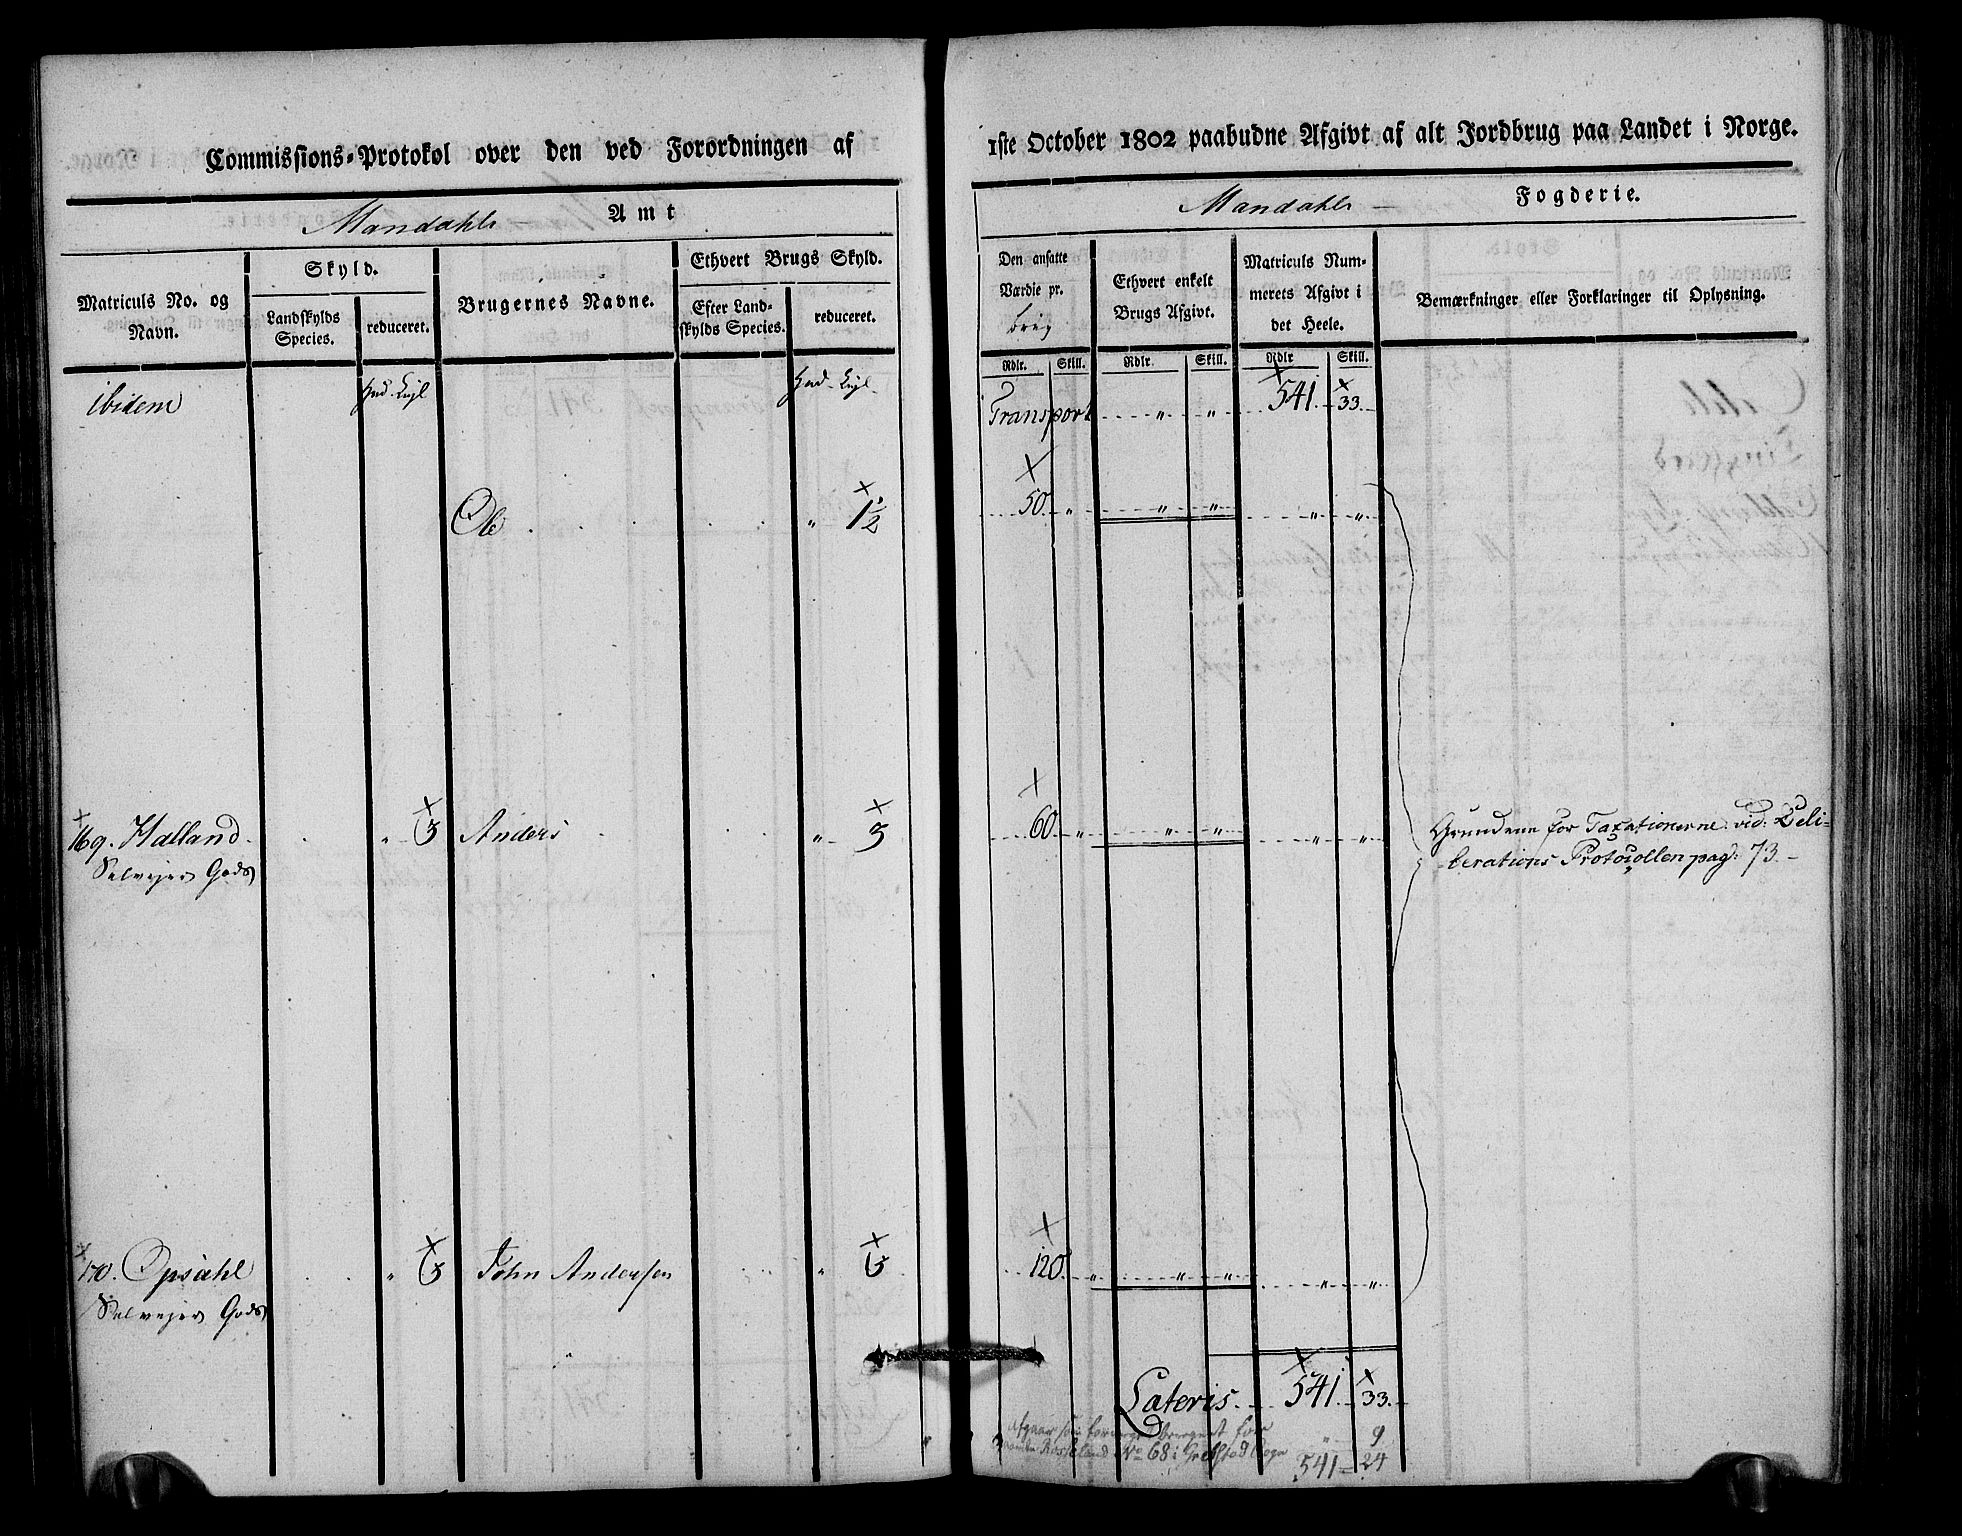 Commissions-Protokol over den ved Forordningen af
Mandahls Amt
Matriculs No. og Navn.
Skyld.
Landskylds Species.
reduceret.
Brugernes Navne.
Ethvert Brugs Skyld.
Efter Landskylds Species.
reduceret.
ibidem
Ole " 1½
169. Halland " 3 Anders " 3
Selvejer Gods
170. Opsahl " 3 John Andersen " 3
Selvejer Gods
1ste October 1802 paabudne Afgivt af alt Jordbrug paa Landet i Norge.
Mandahls Fogderie.
Den ansatte Værdie pr. brug
Ethvert enkelt Brugs Afgivt.
Matriculs Nummerets Afgivt i det Heele.
Bemærkninger eller Forklaringer til Oplysning.
Rdlr. Skill. Rdlr. Skill. Rdlr Skill.
Transport " " 541 33
50 " " " " "
60 " " " " "
Grundene for Taxationerne vid: Deli-
berations Protocollen pag: 73.
120 " " " " "
Lateris 541 33
" 9
No 68 i
541 24